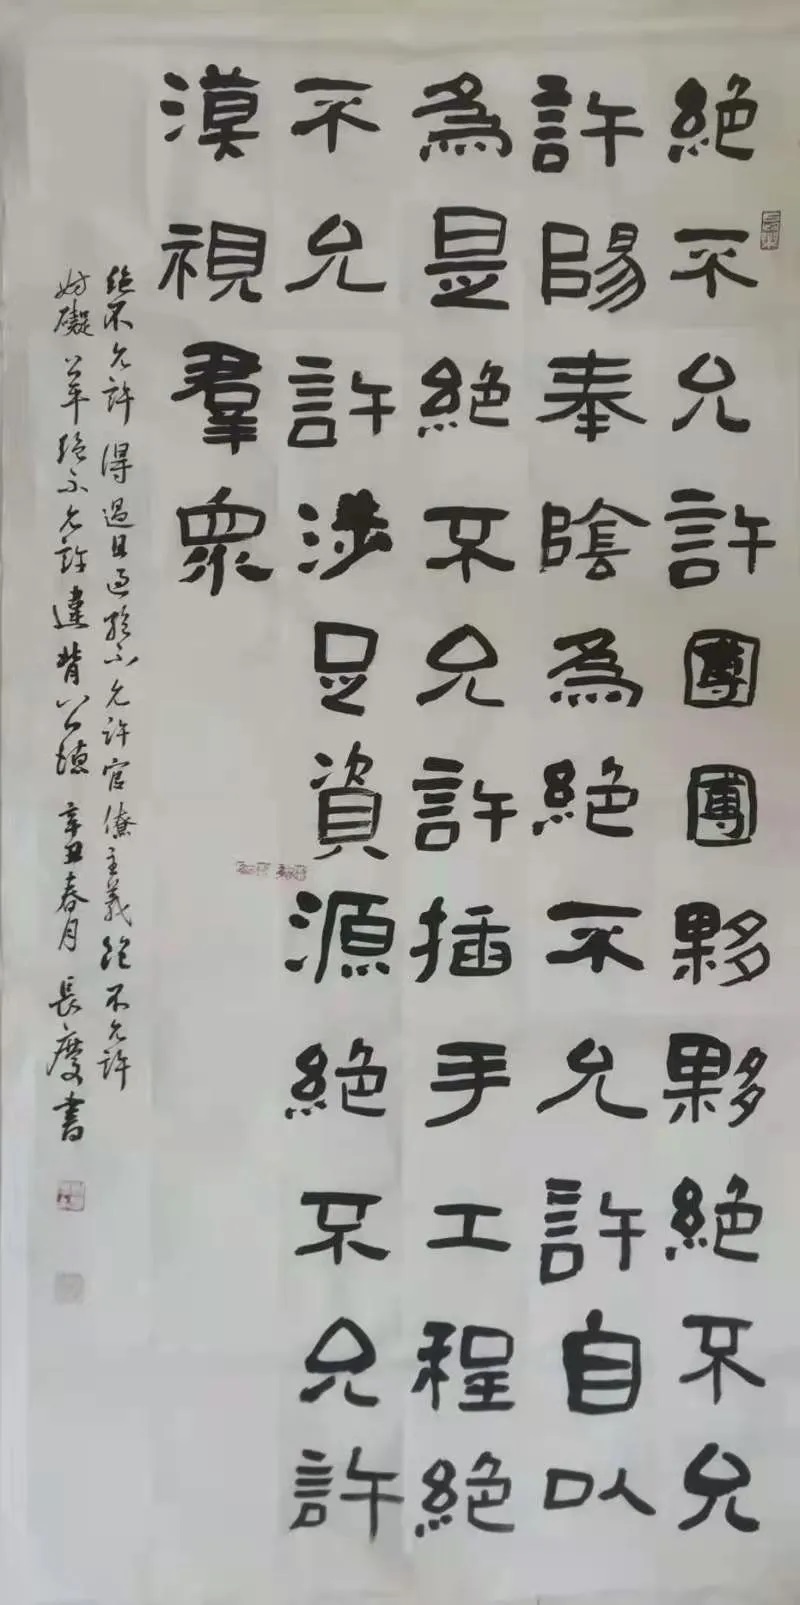 絶不允許團團夥夥絶不允
許陽奉陰為絶不允許自以
為是絶不允許插手工程絶
不允許涉足資源絶不允許
漠視羣衆
絶不允許得過且過絶不允許官僚主義絶不允許
妨礙公平絶不允許違背公德辛丑春月長慶書